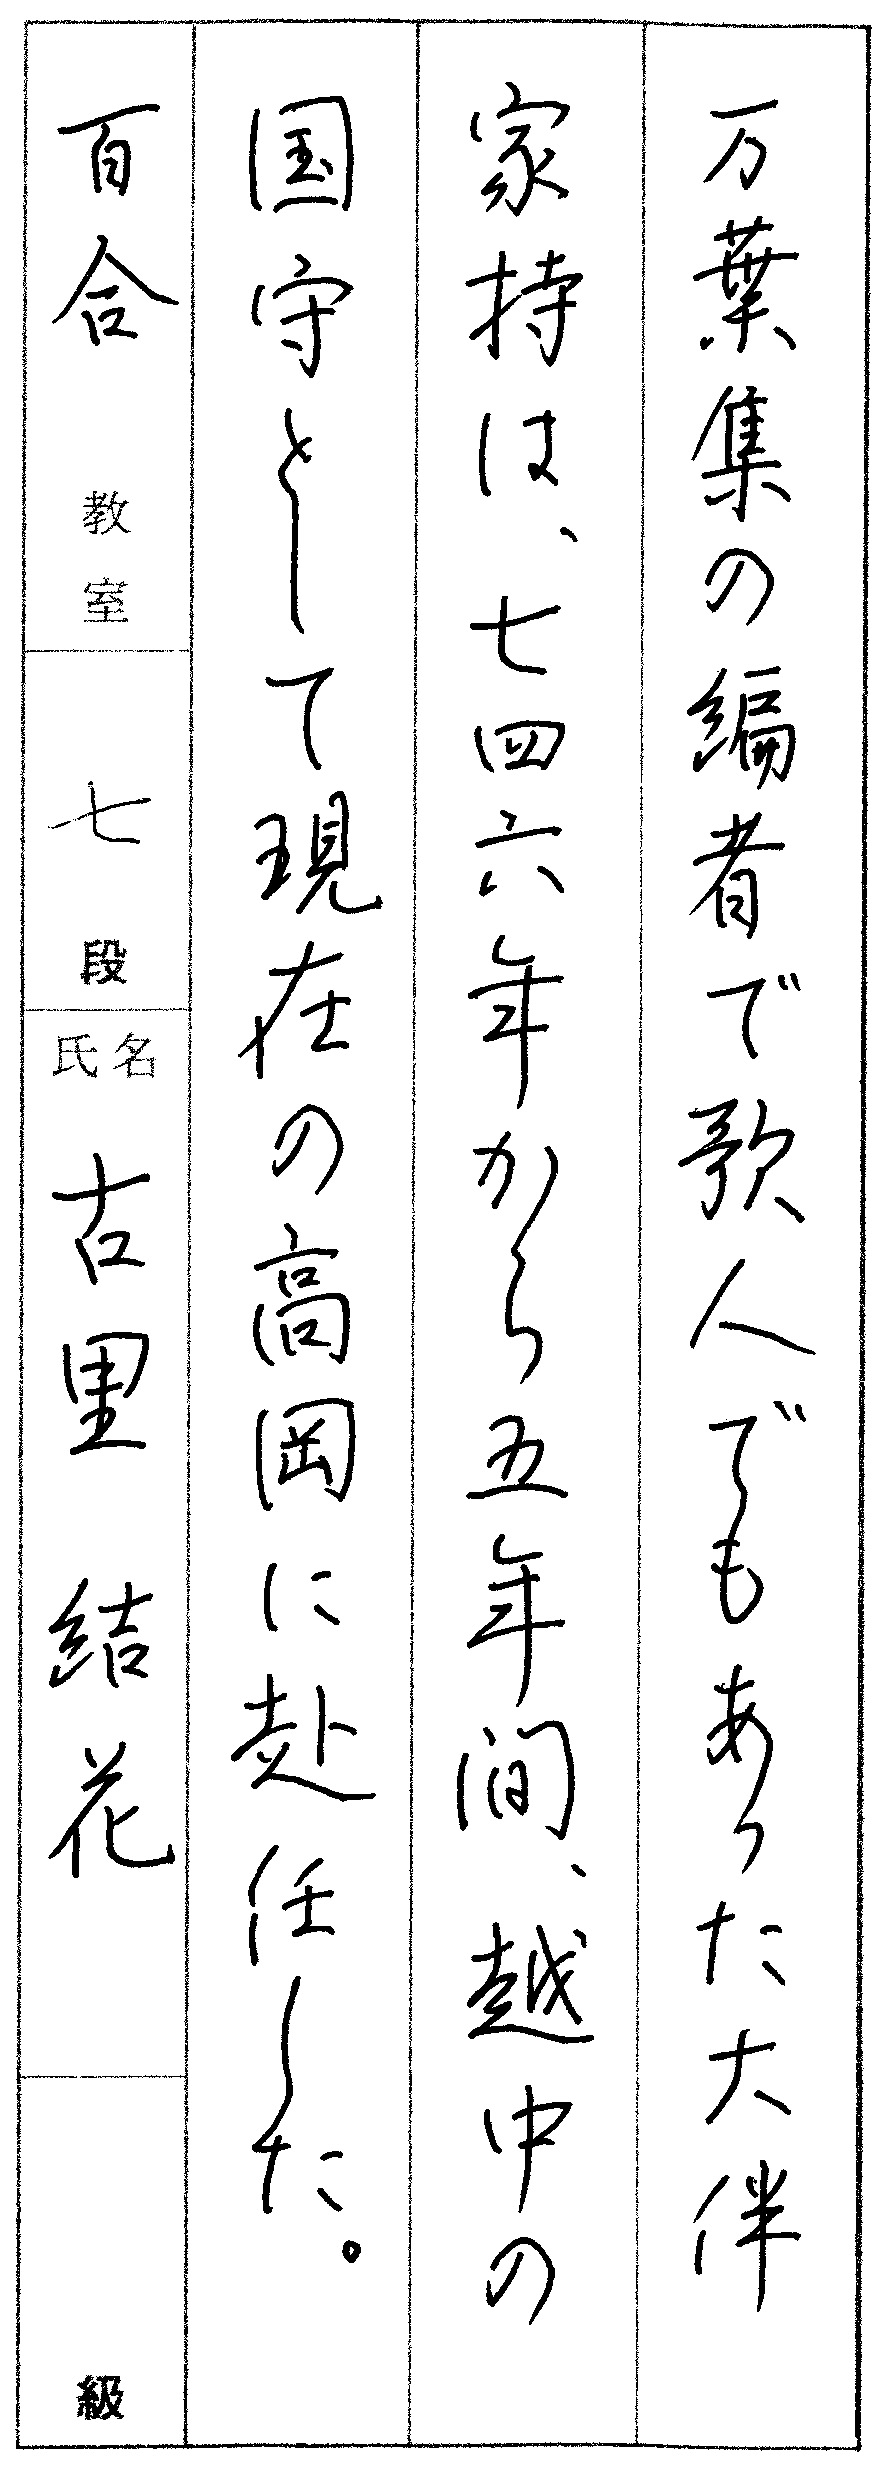 万葉集の編者で歌人でもあった大伴
家持は、七四六年から五年間、越中の
国守として現在の高岡に赴任した。
百合 教室 七 段 氏名 古里 結花 級